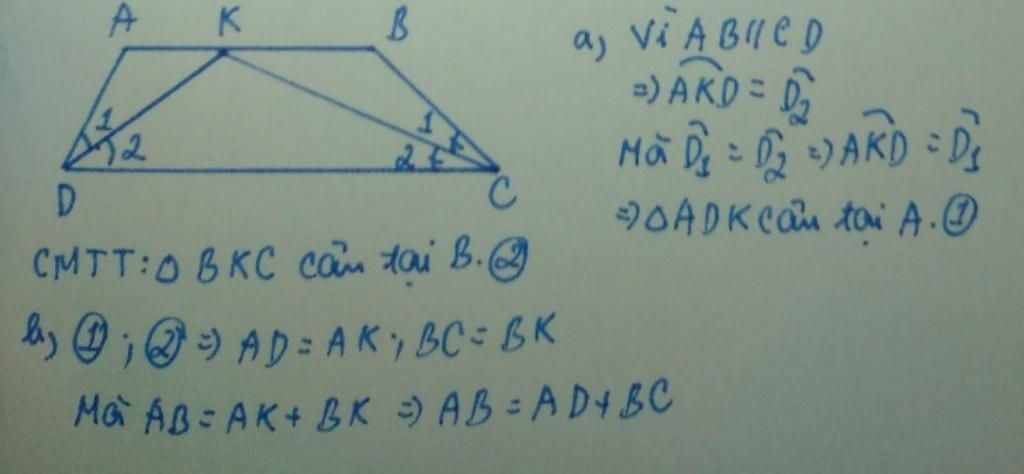 A K B
1 2 1 2
D C
a, Vì AB // CD
=> \widehat{AKD} = \widehat{D_2}
Mà \widehat{D_1} = \widehat{D_2} => \widehat{AKD} = \widehat{D_1}
=> △ADK cân tại A. ①
CMTT: △ BKC cân tại B. ②
b, ① ; ② => AD = AK ; BC = BK
Mà AB = AK + BK => AB = AD + BC